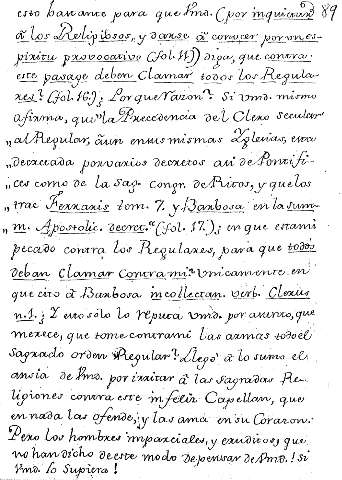 89
esto bastante para que Vmd. (por inquietar
â los Religiosos, y darse â conocer por un es-
piritu provocativo (fol. 11)) diga, que contra
este pasage deben Clamar todos los Regula-
res? (fol. 16.); Por que razon? Si Vmd. mismo
afirma, que "la Precedencia del Clero secular
„ al Regular, âun en us mismas Yglesias, esta
„ decretada por varios decretos asi de Pontifi-
„ ces como de la Sag. Congn. de Ritos, y que los
„ trae Ferraris tom. 7. y Barbosa en la sum-
m. Apostolic. decret." (fol. 17.); en que esta mi
pecado contra los Regulares, para que todos
deban Clamar Contra mi? Vnicamente en
que cito â Barbosa in collectan. verb. Clerus
n. 1.; Y esto sólo lo reputa Vmd. por asunto, que
merece, que tome contra mi las armas todo el
sagrado orden Regular? Llegó â lo sumo el
ansia de Vmd. por irritar â las sagradas Re-
ligiones contra este infeliz Capellan, que
en nada las ofende, y las ama en su Corazon:
Pero los hombres imparciales, y eruditos, que
no han dicho de este modo de pensar de Vmd.! Si
Vmd. lo Supiera!